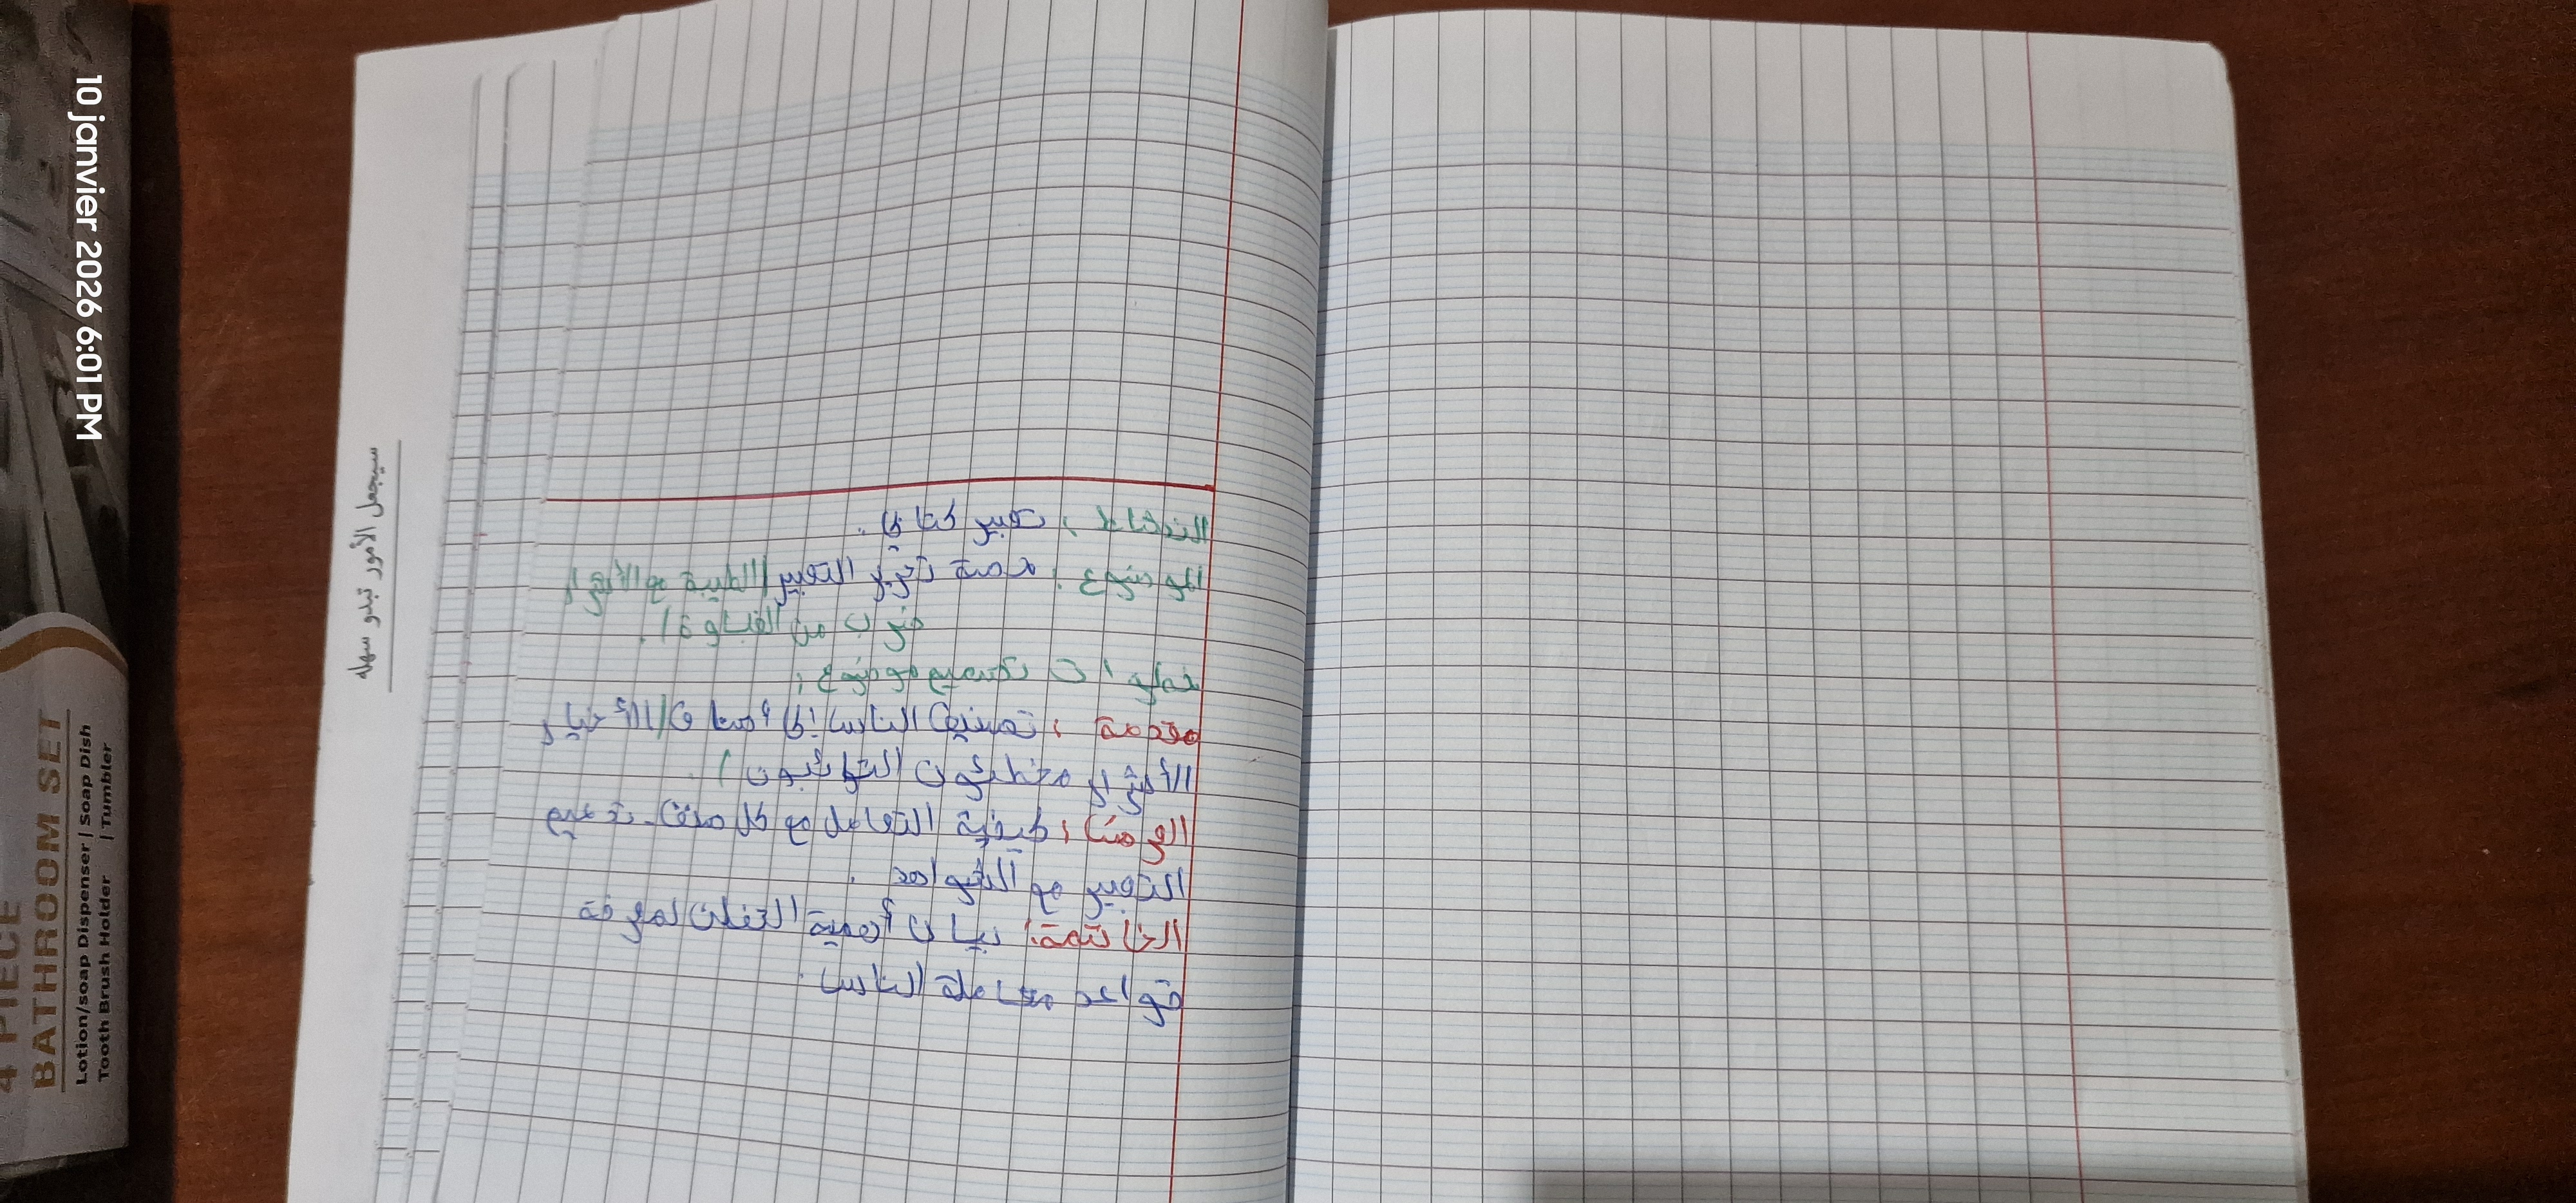 النشاط : تعبير كتابي .
الموضوع : حصة تحرير التعبير /الطيبة مع الأشرار
ضرب من الغباوة/.
خطوات تصميم موضوع :
مقدمة : تصنيف الناس إلى أصناف (الأخيار
الأشرار مخطئون التوابون)
العرض : كيفية التعامل مع كل صنف. تدعيم
التعبير مع الشواهد .
الخاتمة : بيان أهمية التفطن لمعرفة
قواعد معاملة الناس
سيجعل الأمور تبدو سهله
10 janvier 2026 6:01 PM
4 PIECE
BATHROOM SET
Lotion/soap Dispenser | Soap Dish
Tooth Brush Holder | Tumbler